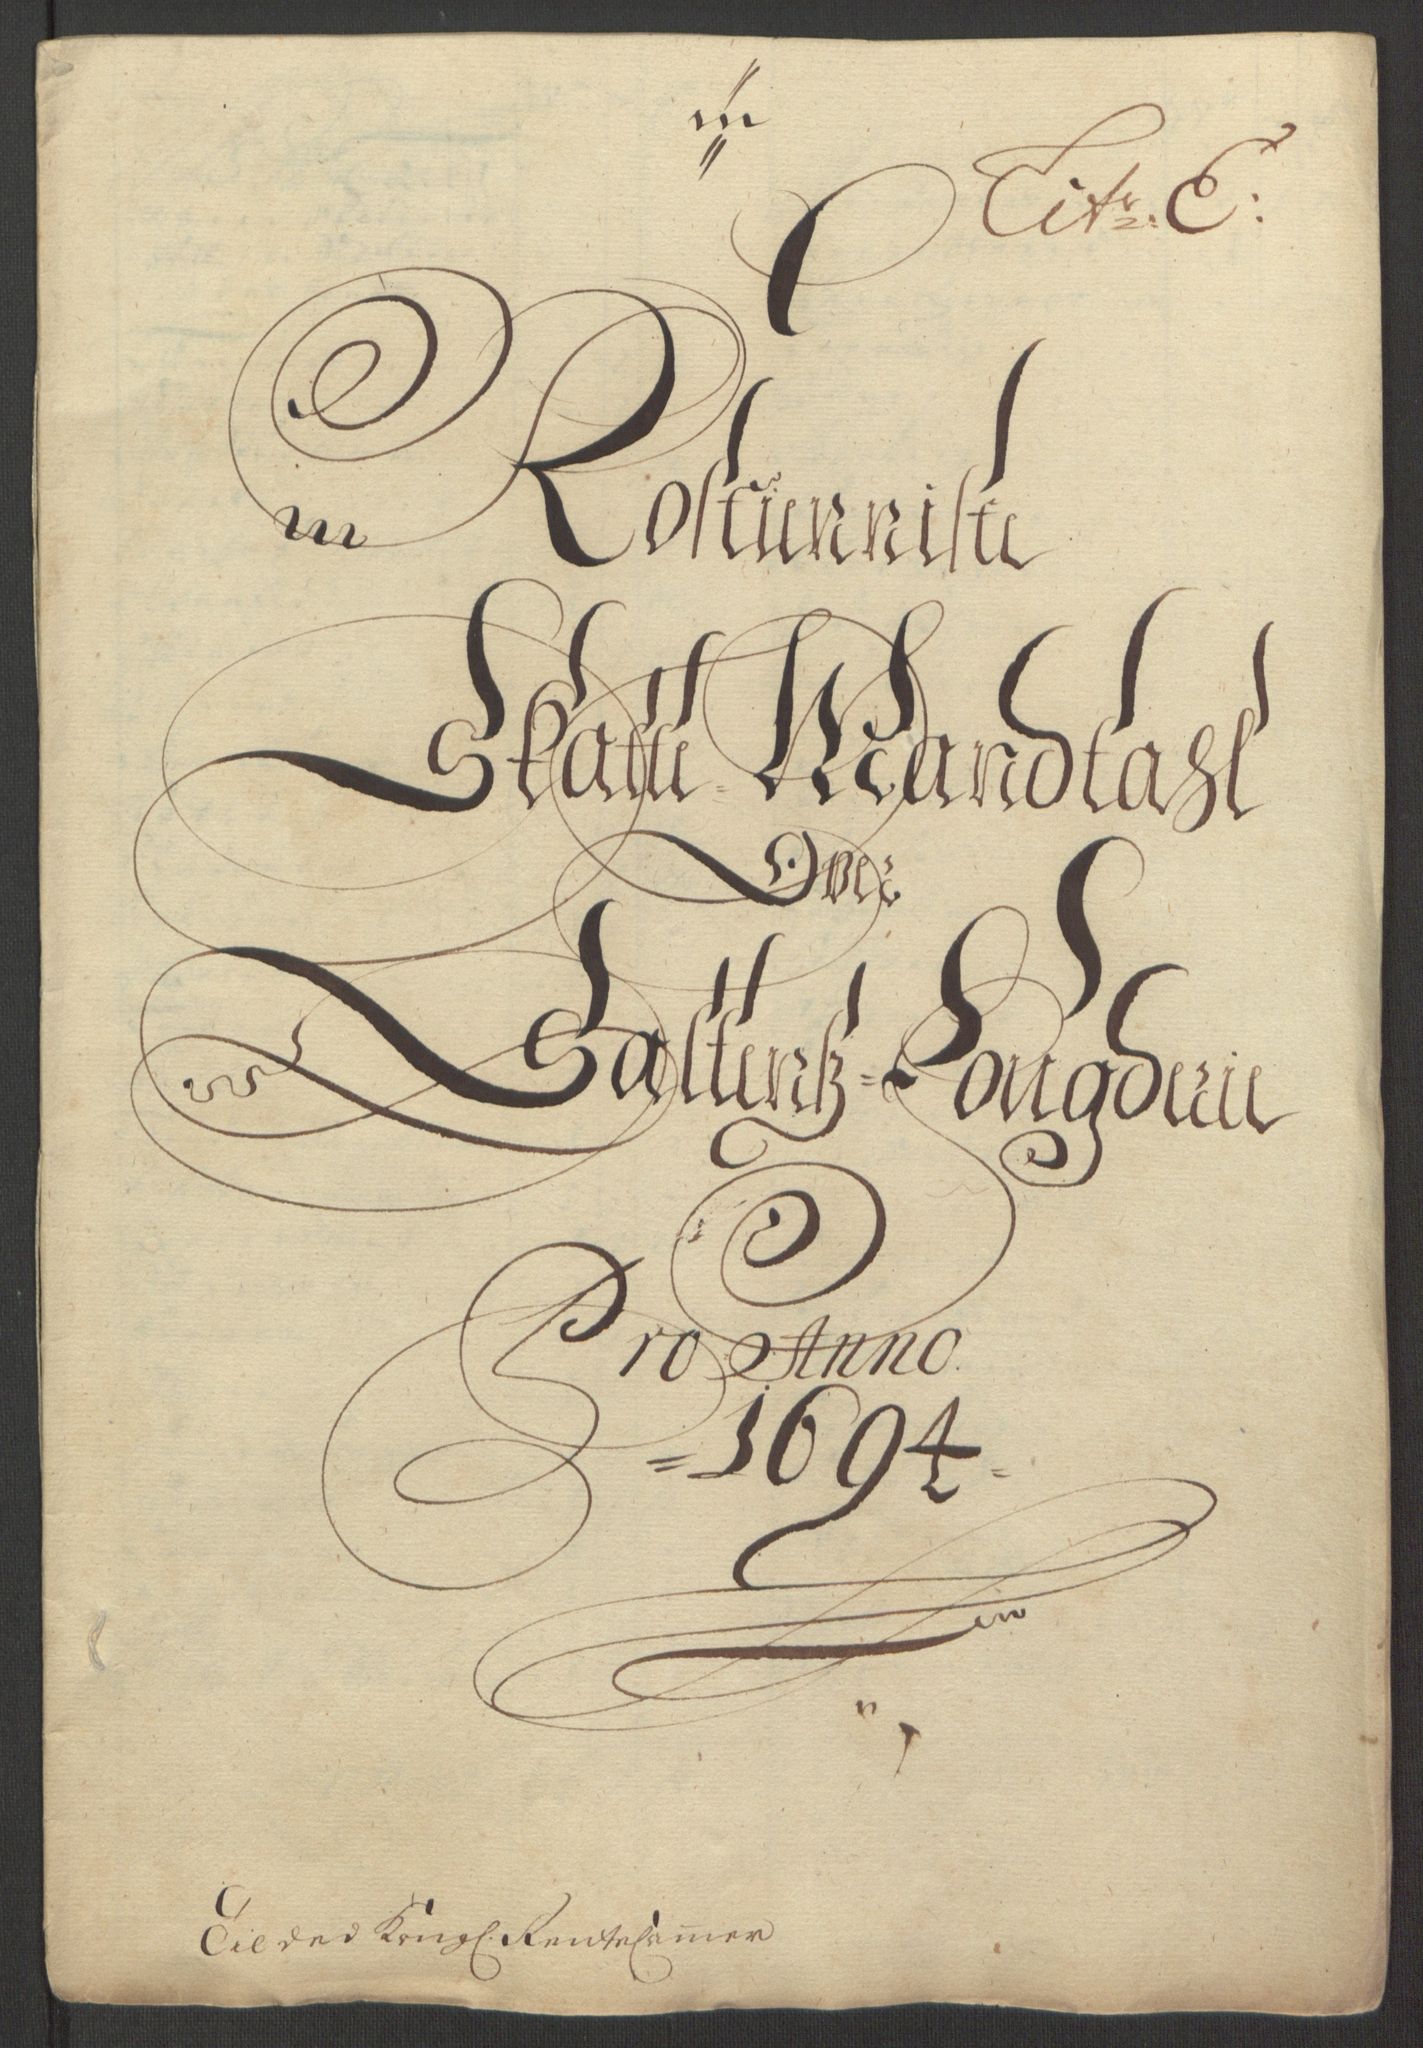 Litr. E:
Rostienniste
Skatte-Mandtahl
Over
Saltens-Fougderie
Pro Anno
1694
Til ded Kongl. Rentecammer